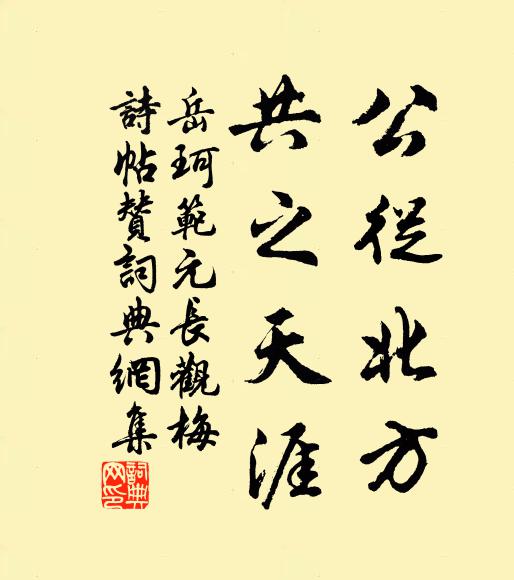 公從北方
共之天涯
岳珂範元長觀梅
詩帖贊詞典網集